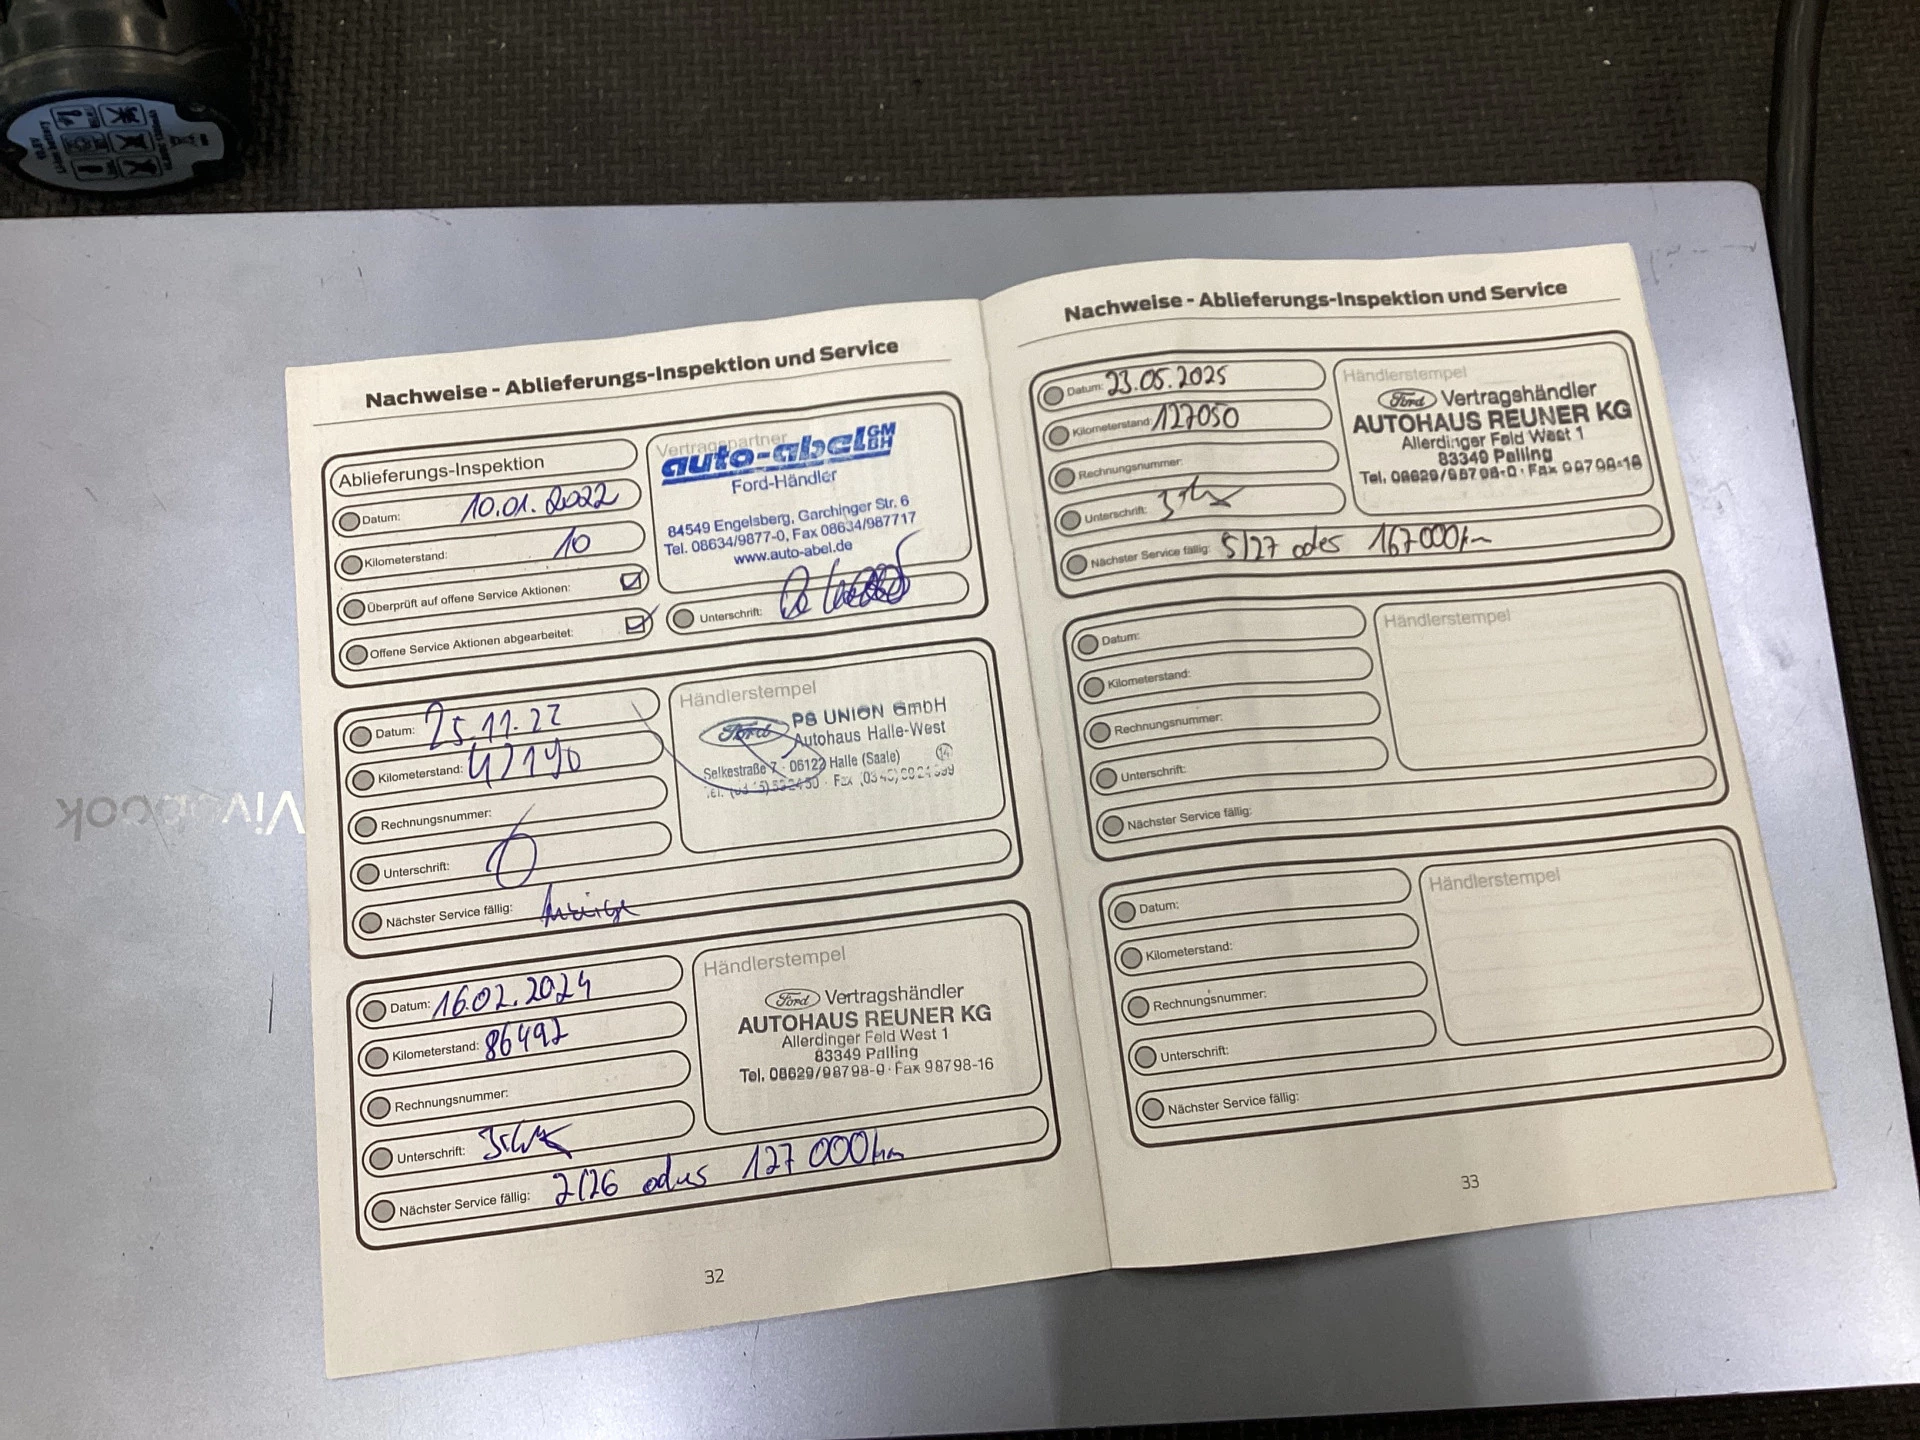 Nachweise - Ablieferungs-Inspektion und Service
Ablieferungs-Inspektion
Datum: 10.01.2022
Kilometerstand: 10
Überprüft auf offene Service Aktionen:
Offene Service Aktionen abgearbeitet:
Vertragspartner
auto-abel GMBH
Ford-Händler
84549 Engelsberg, Garchinger Str. 6
Tel. 08634/9877-0, Fax 08634/987717
www.auto-abel.de
Unterschrift:
Datum: 25.11.22
Kilometerstand: 47190
Rechnungsnummer:
Unterschrift:
Nächster Service fällig: Anzeige
Händlerstempel
Ford PS UNION GmbH
Autohaus Halle-West
Selkestraße 7 · 06122 Halle (Saale)
14
Datum: 16.02.2024
Kilometerstand: 86492
Rechnungsnummer:
Unterschrift:
Nächster Service fällig: 2/26 oder 127 000km
Händlerstempel
Ford Vertragshändler
AUTOHAUS REUNER KG
Allerdinger Feld West 1
83349 Palling
Tel. 08629/98798-0 · Fax 98798-16
32
Nachweise - Ablieferungs-Inspektion und Service
Datum: 23.05.2025
Kilometerstand: 127050
Rechnungsnummer:
Unterschrift:
Nächster Service fällig: 5/27 oder 167000km
Händlerstempel
Ford Vertragshändler
AUTOHAUS REUNER KG
Allerdinger Feld West 1
83349 Palling
Tel. 08629/98798-0 · Fax 98798-16
Datum:
Kilometerstand:
Rechnungsnummer:
Unterschrift:
Nächster Service fällig:
Händlerstempel
Datum:
Kilometerstand:
Rechnungsnummer:
Unterschrift:
Nächster Service fällig:
Händlerstempel
33
Vivobook